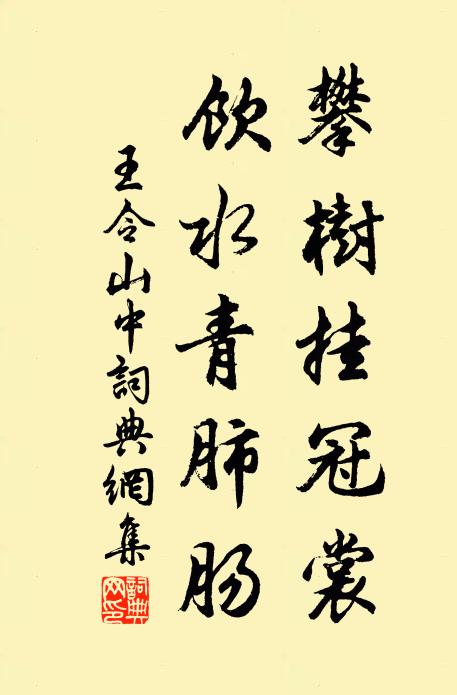 攀樹挂冠裳
飲水青肺肠
王令山中詞典網集
詞典網印